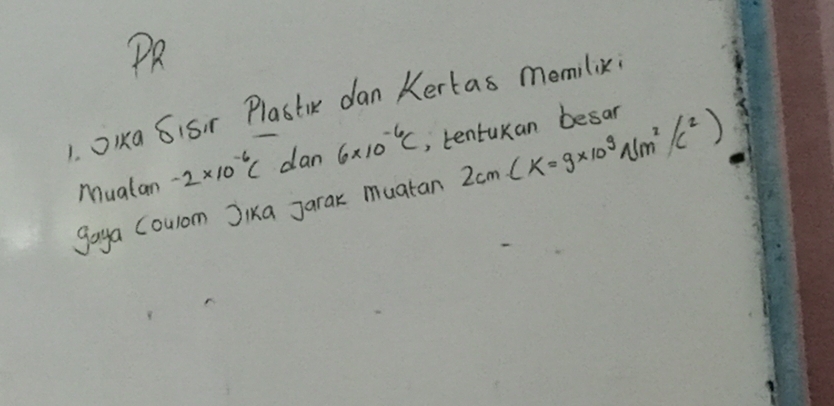 PR
1. Jika Sisir Plastik dan Kertas memiliki
Muatan -2×10⁻⁶C dan 6×10⁻⁶C, tentukan besar
gaya Coulom Jika Jarak Muatan 2cm (K=9×10⁹ Nm²/C²)